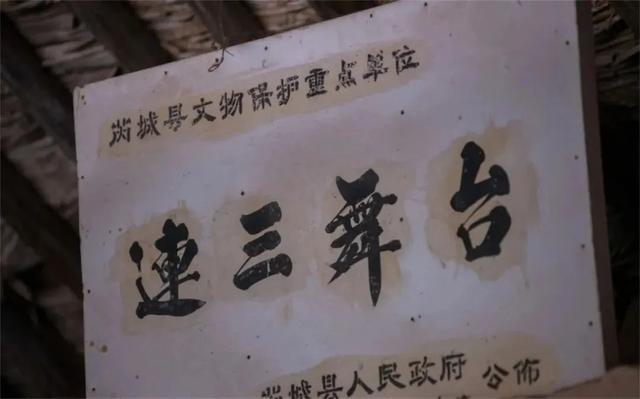 芮城县文物保护重点单位
連三舞台
芮城县人民政府 公佈